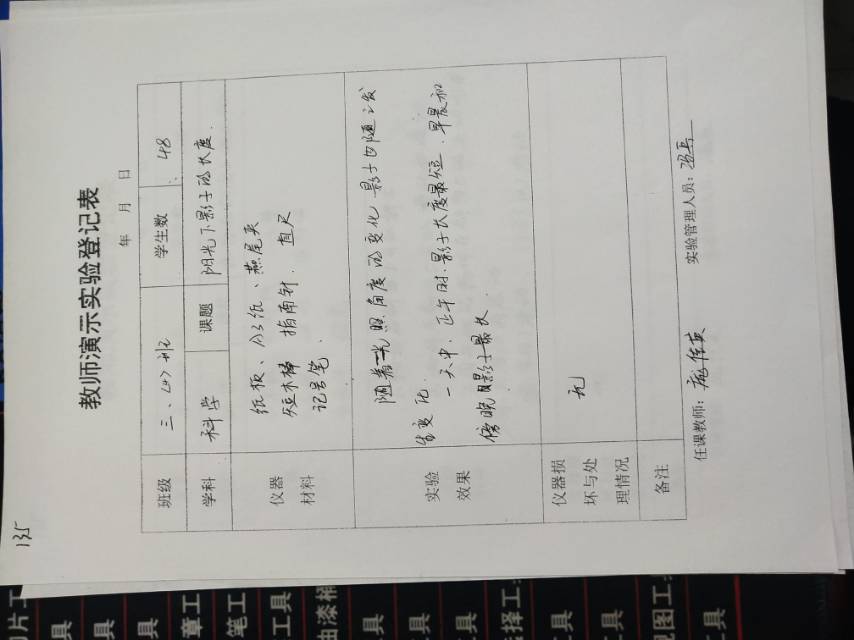 135
教师演示实验登记表
年 月 日
班级 三、(4)班 学生数 48
学科 科学 课题 阳光下影子的长度.
仪器材料
纸板、白纸、燕尾夹
短木棒 指南针、直尺
记号笔
实验效果
随着光照角度的变化影子也随之发
生变化.
一天中、正午时.影子长度最短、早晨和
傍晚影子最长.
仪器损坏与处理情况
无
备注
任课教师: 实验管理人员:
片工
具
章工
笔工
工具
油漆桶
具
具
选择工
具
工具
视图工
工具